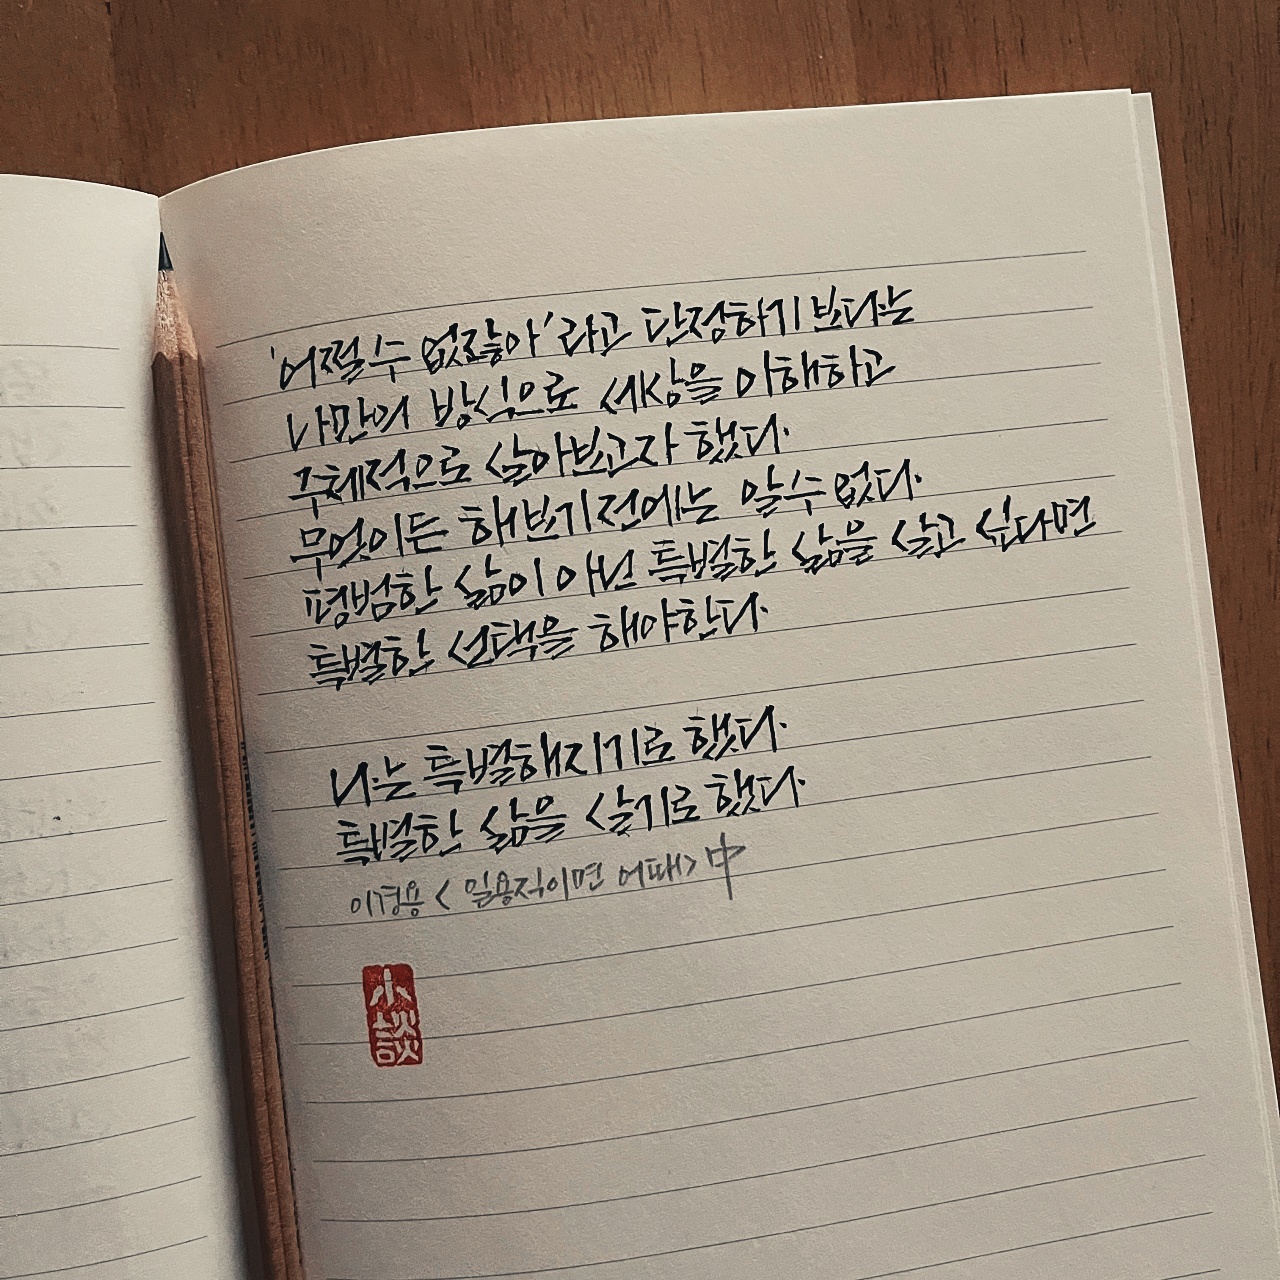 '어쩔수 없잖아'라고 단정하기보다는
나만의 방식으로 세상을 이해하고
주체적으로 살아보고자 했다.
무엇이든 해보기전에는 알수없다.
평범한 삶이 아닌 특별한 삶을 살고 싶다면
특별한 선택을 해야한다.
나는 특별해지기로 했다.
특별한 삶을 살기로 했다.
이경용 < 일용직이면 어때> 中
小
談